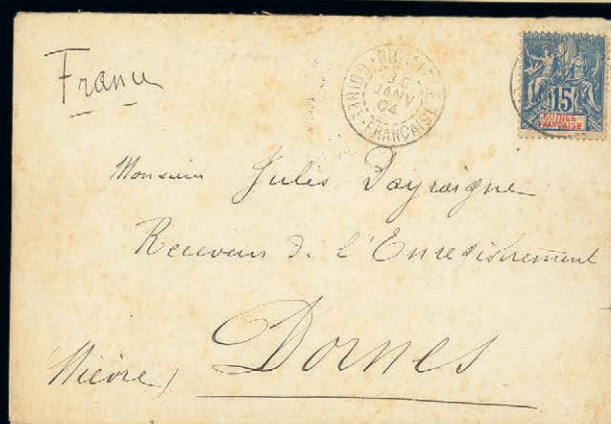 France
JANV
04
GUINÉE FRANÇAISE
15
GUINÉE
FRANÇAISE
Monsieur Jules Dayraigne
Receveur de l'Enregistrement
Dornes
(Nièvre)